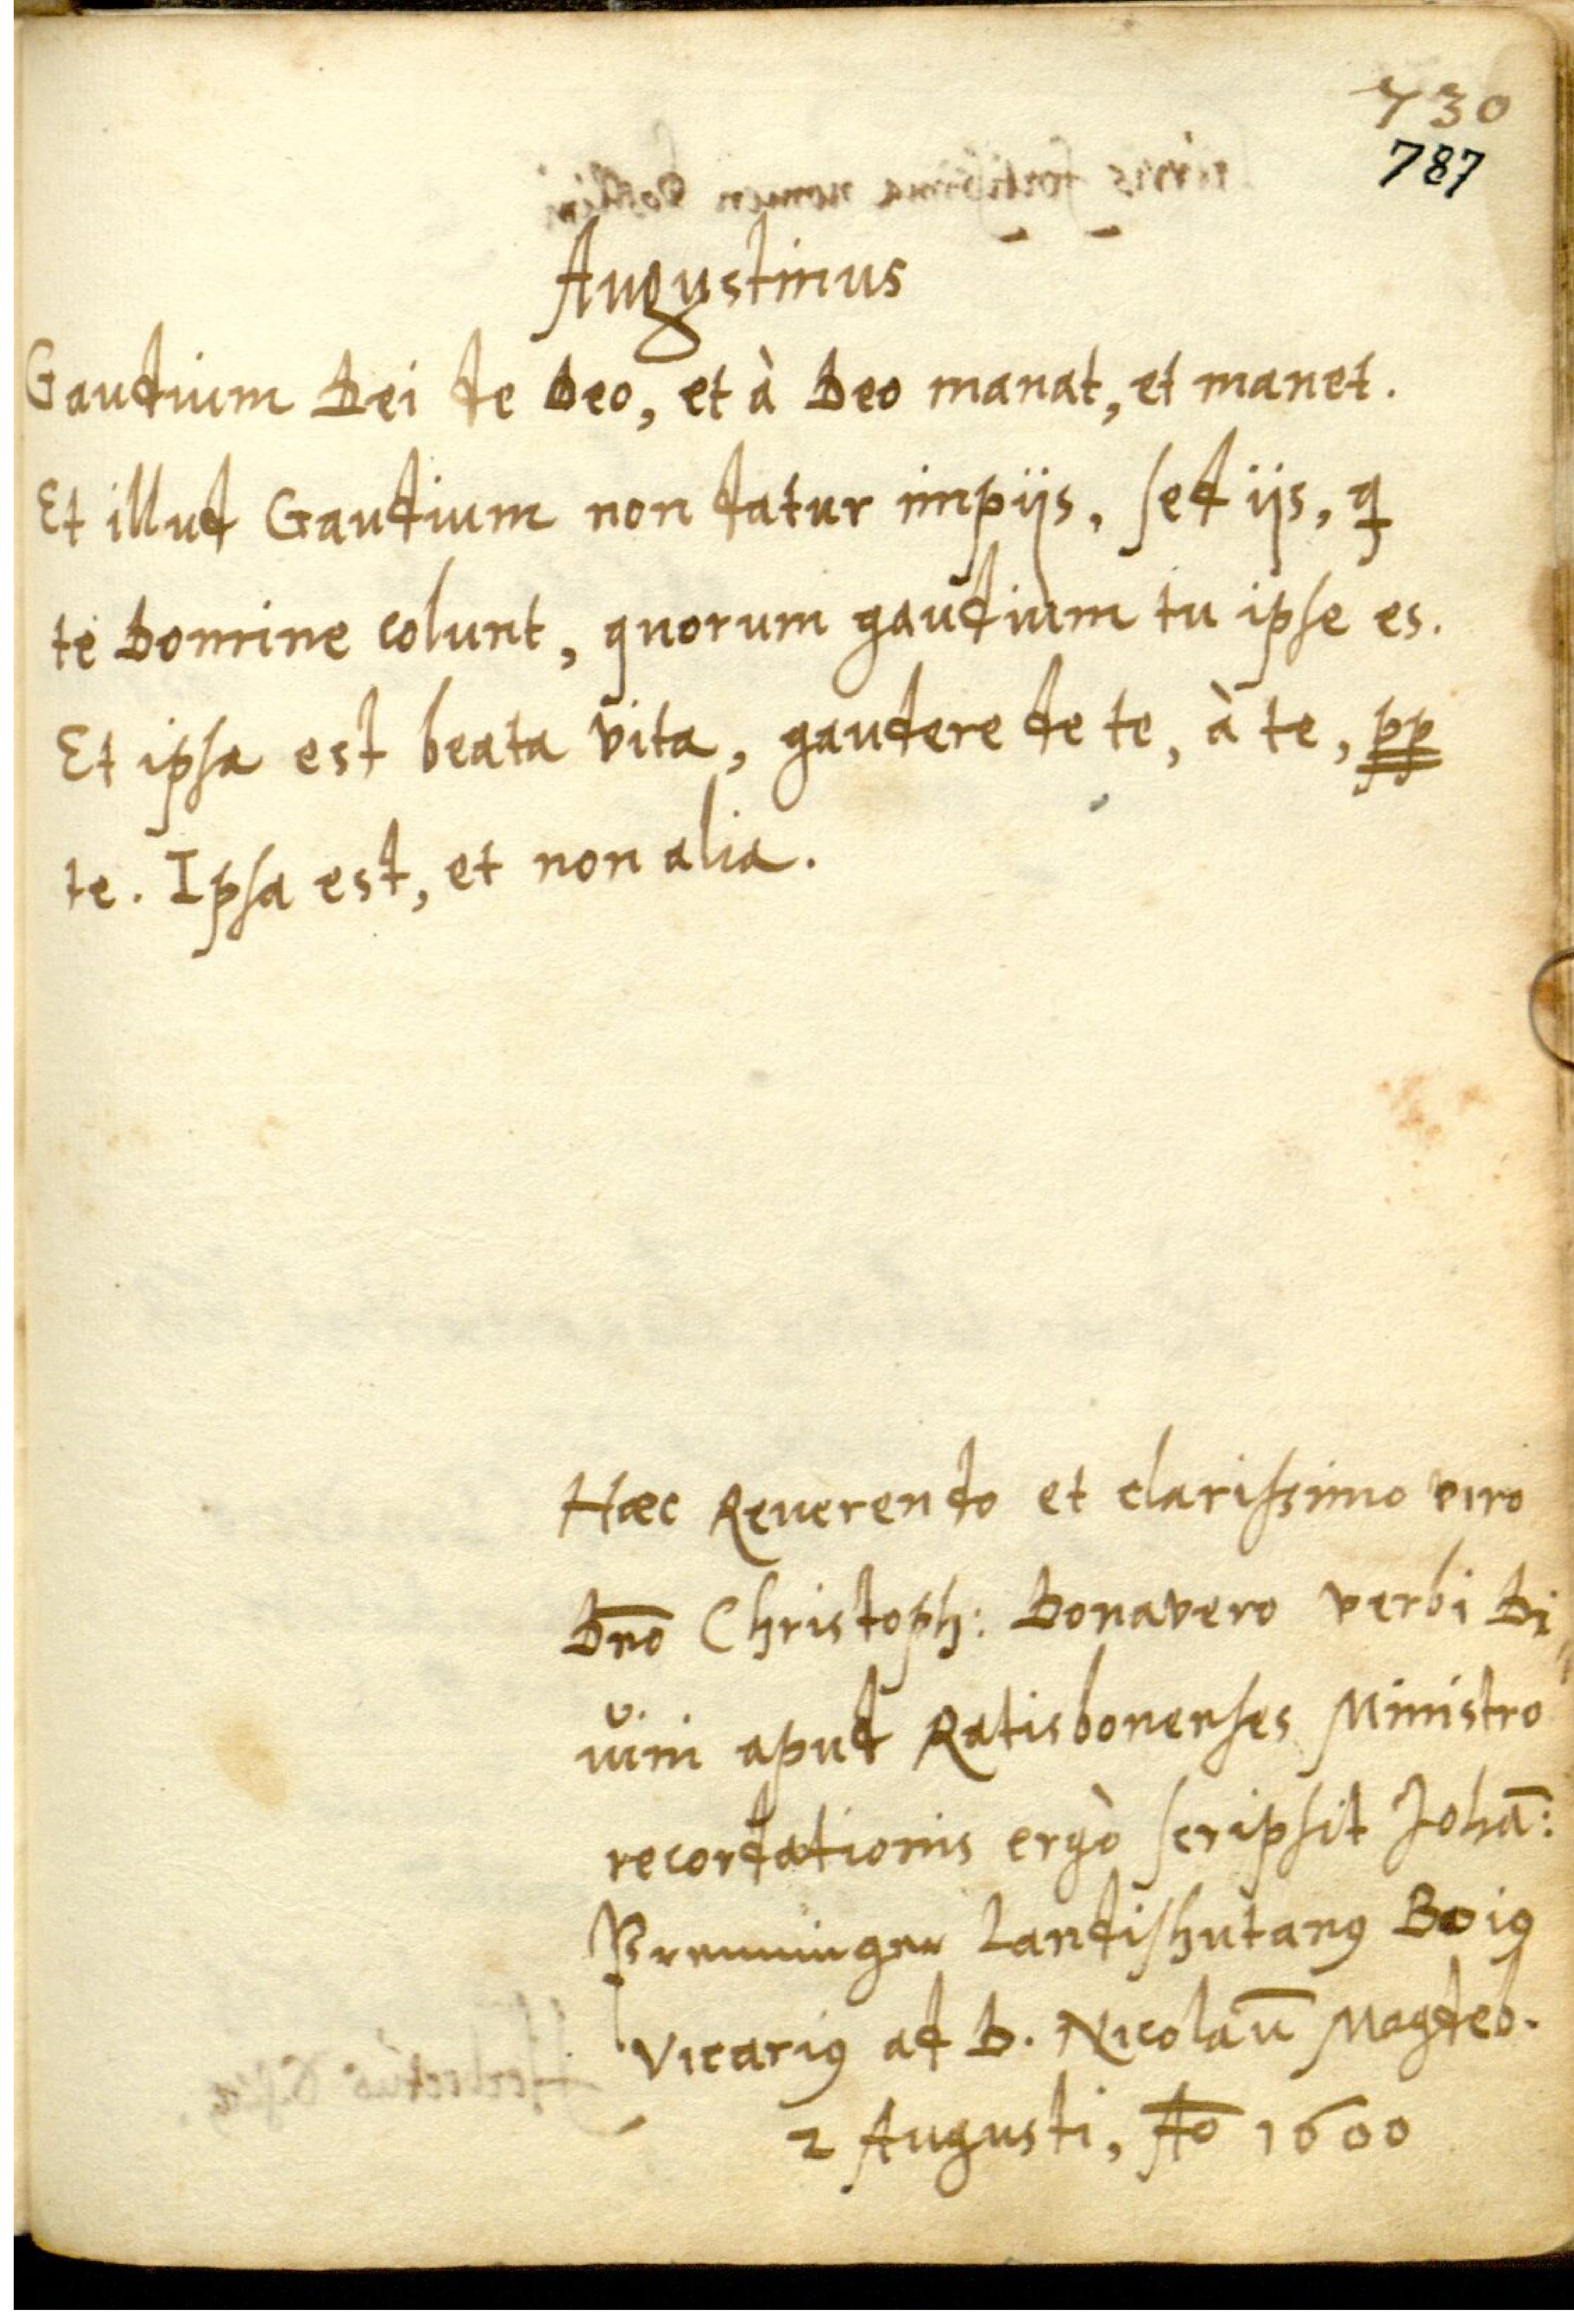 730
787
Augustinus
Gaudium Dei de Deo, et à Deo manat, et manet.
Et illud Gaudium non datur impijs, sed ijs, q
te Domine colunt, quorum gaudium tu ipse es.
Et ipsa est beata vita, gaudere de te, à te, pp
te. Ipsa est, et non alia.
Haec Reuerendo et clarissimo viro
Dno̅ Christoph: Donavero verbi Di,,
uini apud Ratisbonenses Ministro
recordationis ergò scripsit Johā:
Prenninger Landishutanꝰ Boiꝰ
Vicariꝰ ad D. Nicolau̅ Magdeb.
2 Augusti, A̅o̅ 1600